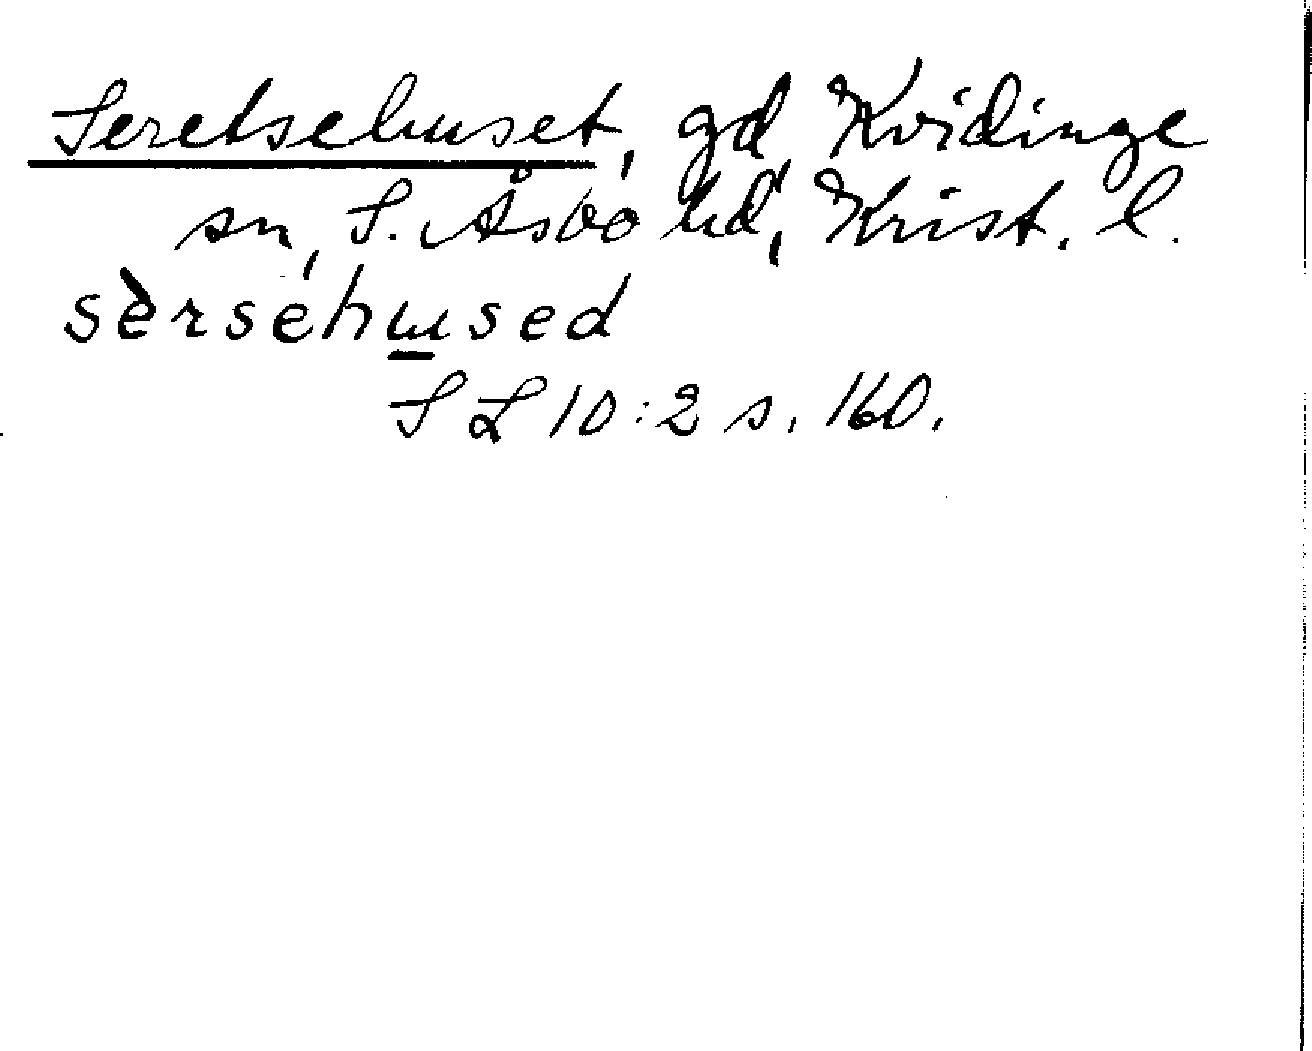 Seretsehuset, gd, Kvidinge
sn, S. Åsbo hd, Krist. l.
sèrsehused
S L 10:2 s. 160.